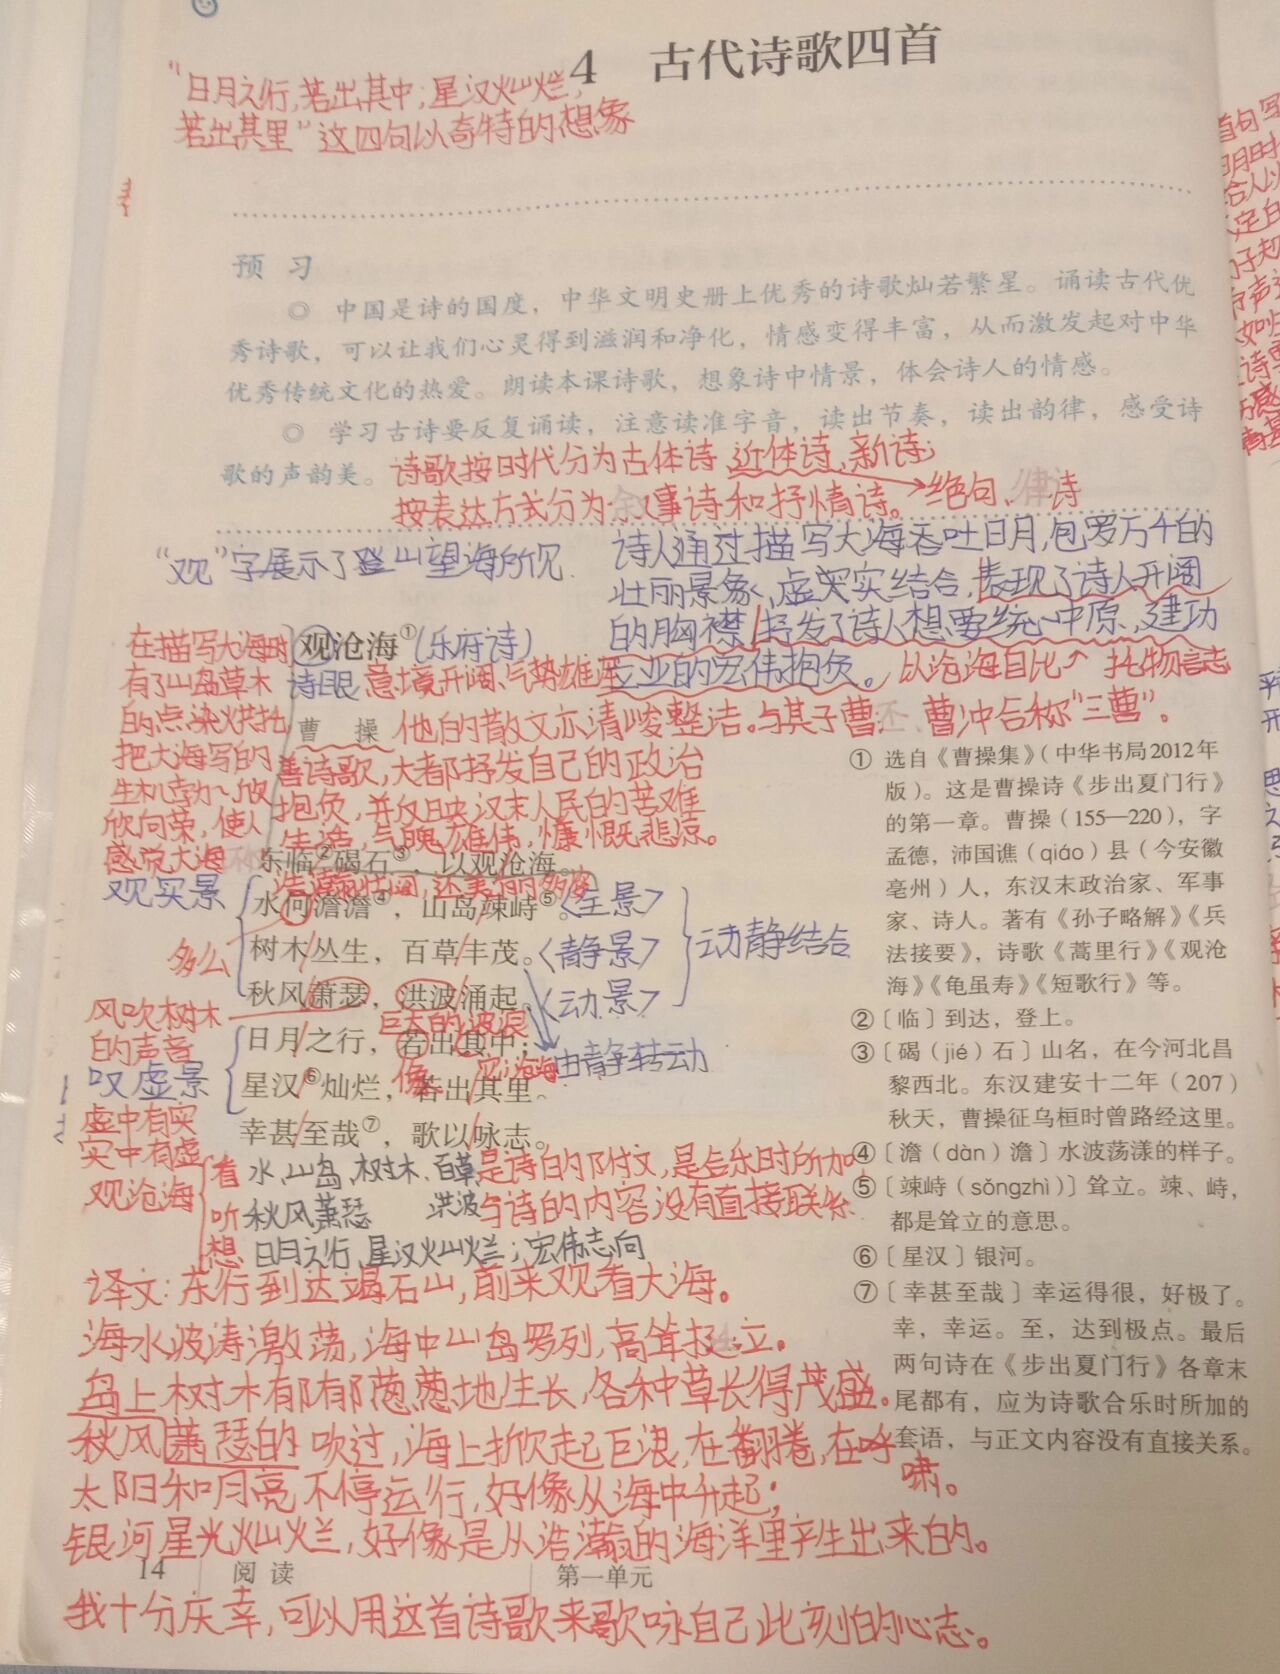 4 古代诗歌四首
“日月之行,若出其中;星汉灿烂,
若出其里”这四句以奇特的想象
预 习
◎ 中国是诗的国度，中华文明史册上优秀的诗歌灿若繁星。诵读古代优
秀诗歌，可以让我们心灵得到滋润和净化，情感变得丰富，从而激发起对中华
优秀传统文化的热爱。朗读本课诗歌，想象诗中情景，体会诗人的情感。
◎ 学习古诗要反复诵读，注意读准字音，读出节奏，读出韵律，感受诗
歌的声韵美。
诗歌按时代分为古体诗、近体诗、新诗;
按表达方式分为叙事诗和抒情诗。
绝句、律诗
“观”字展示了登山望海所见
诗人通过描写大海吞吐日月,包罗万千的
壮丽景象,虚实结合,表现了诗人开阔
的胸襟,抒发了诗人想要统一中原,建功
立业的宏伟抱负。以沧海自比 托物言志
在描写大海时
有了山岛草木
的点染烘托
把大海写的
生机勃勃,欣
欣向荣,使人
感觉大海
观沧海①(乐府诗)
诗眼 意境开阔、气势雄浑
曹 操 他的散文亦清峻整洁。与其子曹丕、曹冲合称“三曹”。
善诗歌,大都抒发自己的政治
抱负,并反映汉末人民的苦难
生活,气魄雄伟,慷慨悲凉。
东临②碣石③，以观沧海。
浩瀚壮阔,还美的多姿
水何澹澹④，山岛竦峙⑤。<全景>
树木丛生，百草丰茂。<静景>
秋风萧瑟，洪波涌起。<动景>
动静结合
观实景
多么
风吹树木
的声音
巨大的波浪
日月之行，若出其中；
像
由静转动
星汉⑥灿烂，若出其里。
幸甚至哉⑦，歌以咏志。
叹虚景
虚中有实
实中有虚
观沧海
看 水、山岛、树木、百草
听 秋风萧瑟 洪波
想 日月之行,星汉灿烂;宏伟志向
是诗的附文,是合乐时所加
与诗的内容没有直接联系
译文:东行到达竭石山,前来观看大海。
海水波涛激荡,海中山岛罗列,高耸挺立。
岛上树木郁郁葱葱地生长,各种草长得茂盛。
秋风萧瑟的吹过,海上掀起巨浪,在翻腾,在呼
啸。
太阳和月亮不停运行,好像从海中升起;
银河星光灿烂,好像是从浩瀚的海洋里产生出来的。
我十分庆幸,可以用这首诗歌来歌咏自己此刻怕的心志。
① 选自《曹操集》（中华书局2012年
版）。这是曹操诗《步出夏门行》
的第一章。曹操（155—220），字
孟德，沛国谯（qiáo）县（今安徽
亳州）人，东汉末政治家、军事
家、诗人。著有《孙子略解》《兵
法接要》，诗歌《蒿里行》《观沧
海》《龟虽寿》《短歌行》等。
② 〔临〕到达，登上。
③ 〔碣（jié）石〕山名，在今河北昌
黎西北。东汉建安十二年（207）
秋天，曹操征乌桓时曾路经这里。
④ 〔澹（dàn）澹〕水波荡漾的样子。
⑤ 〔竦峙（sǒngzhì）〕耸立。竦、峙，
都是耸立的意思。
⑥ 〔星汉〕银河。
⑦ 〔幸甚至哉〕幸运得很，好极了。
幸，幸运。至，达到极点。最后
两句诗在《步出夏门行》各章末
尾都有，应为诗歌合乐时所加的
套语，与正文内容没有直接关系。
14 阅 读
第一单元